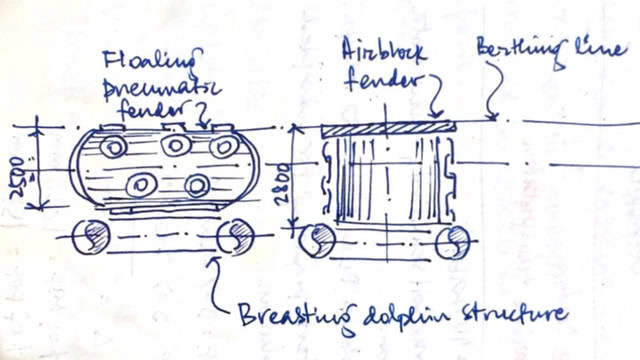 Floating
pneumatic
fender
Airblock
fender
Berthing line
2500
2800
Breasting dolphin structure